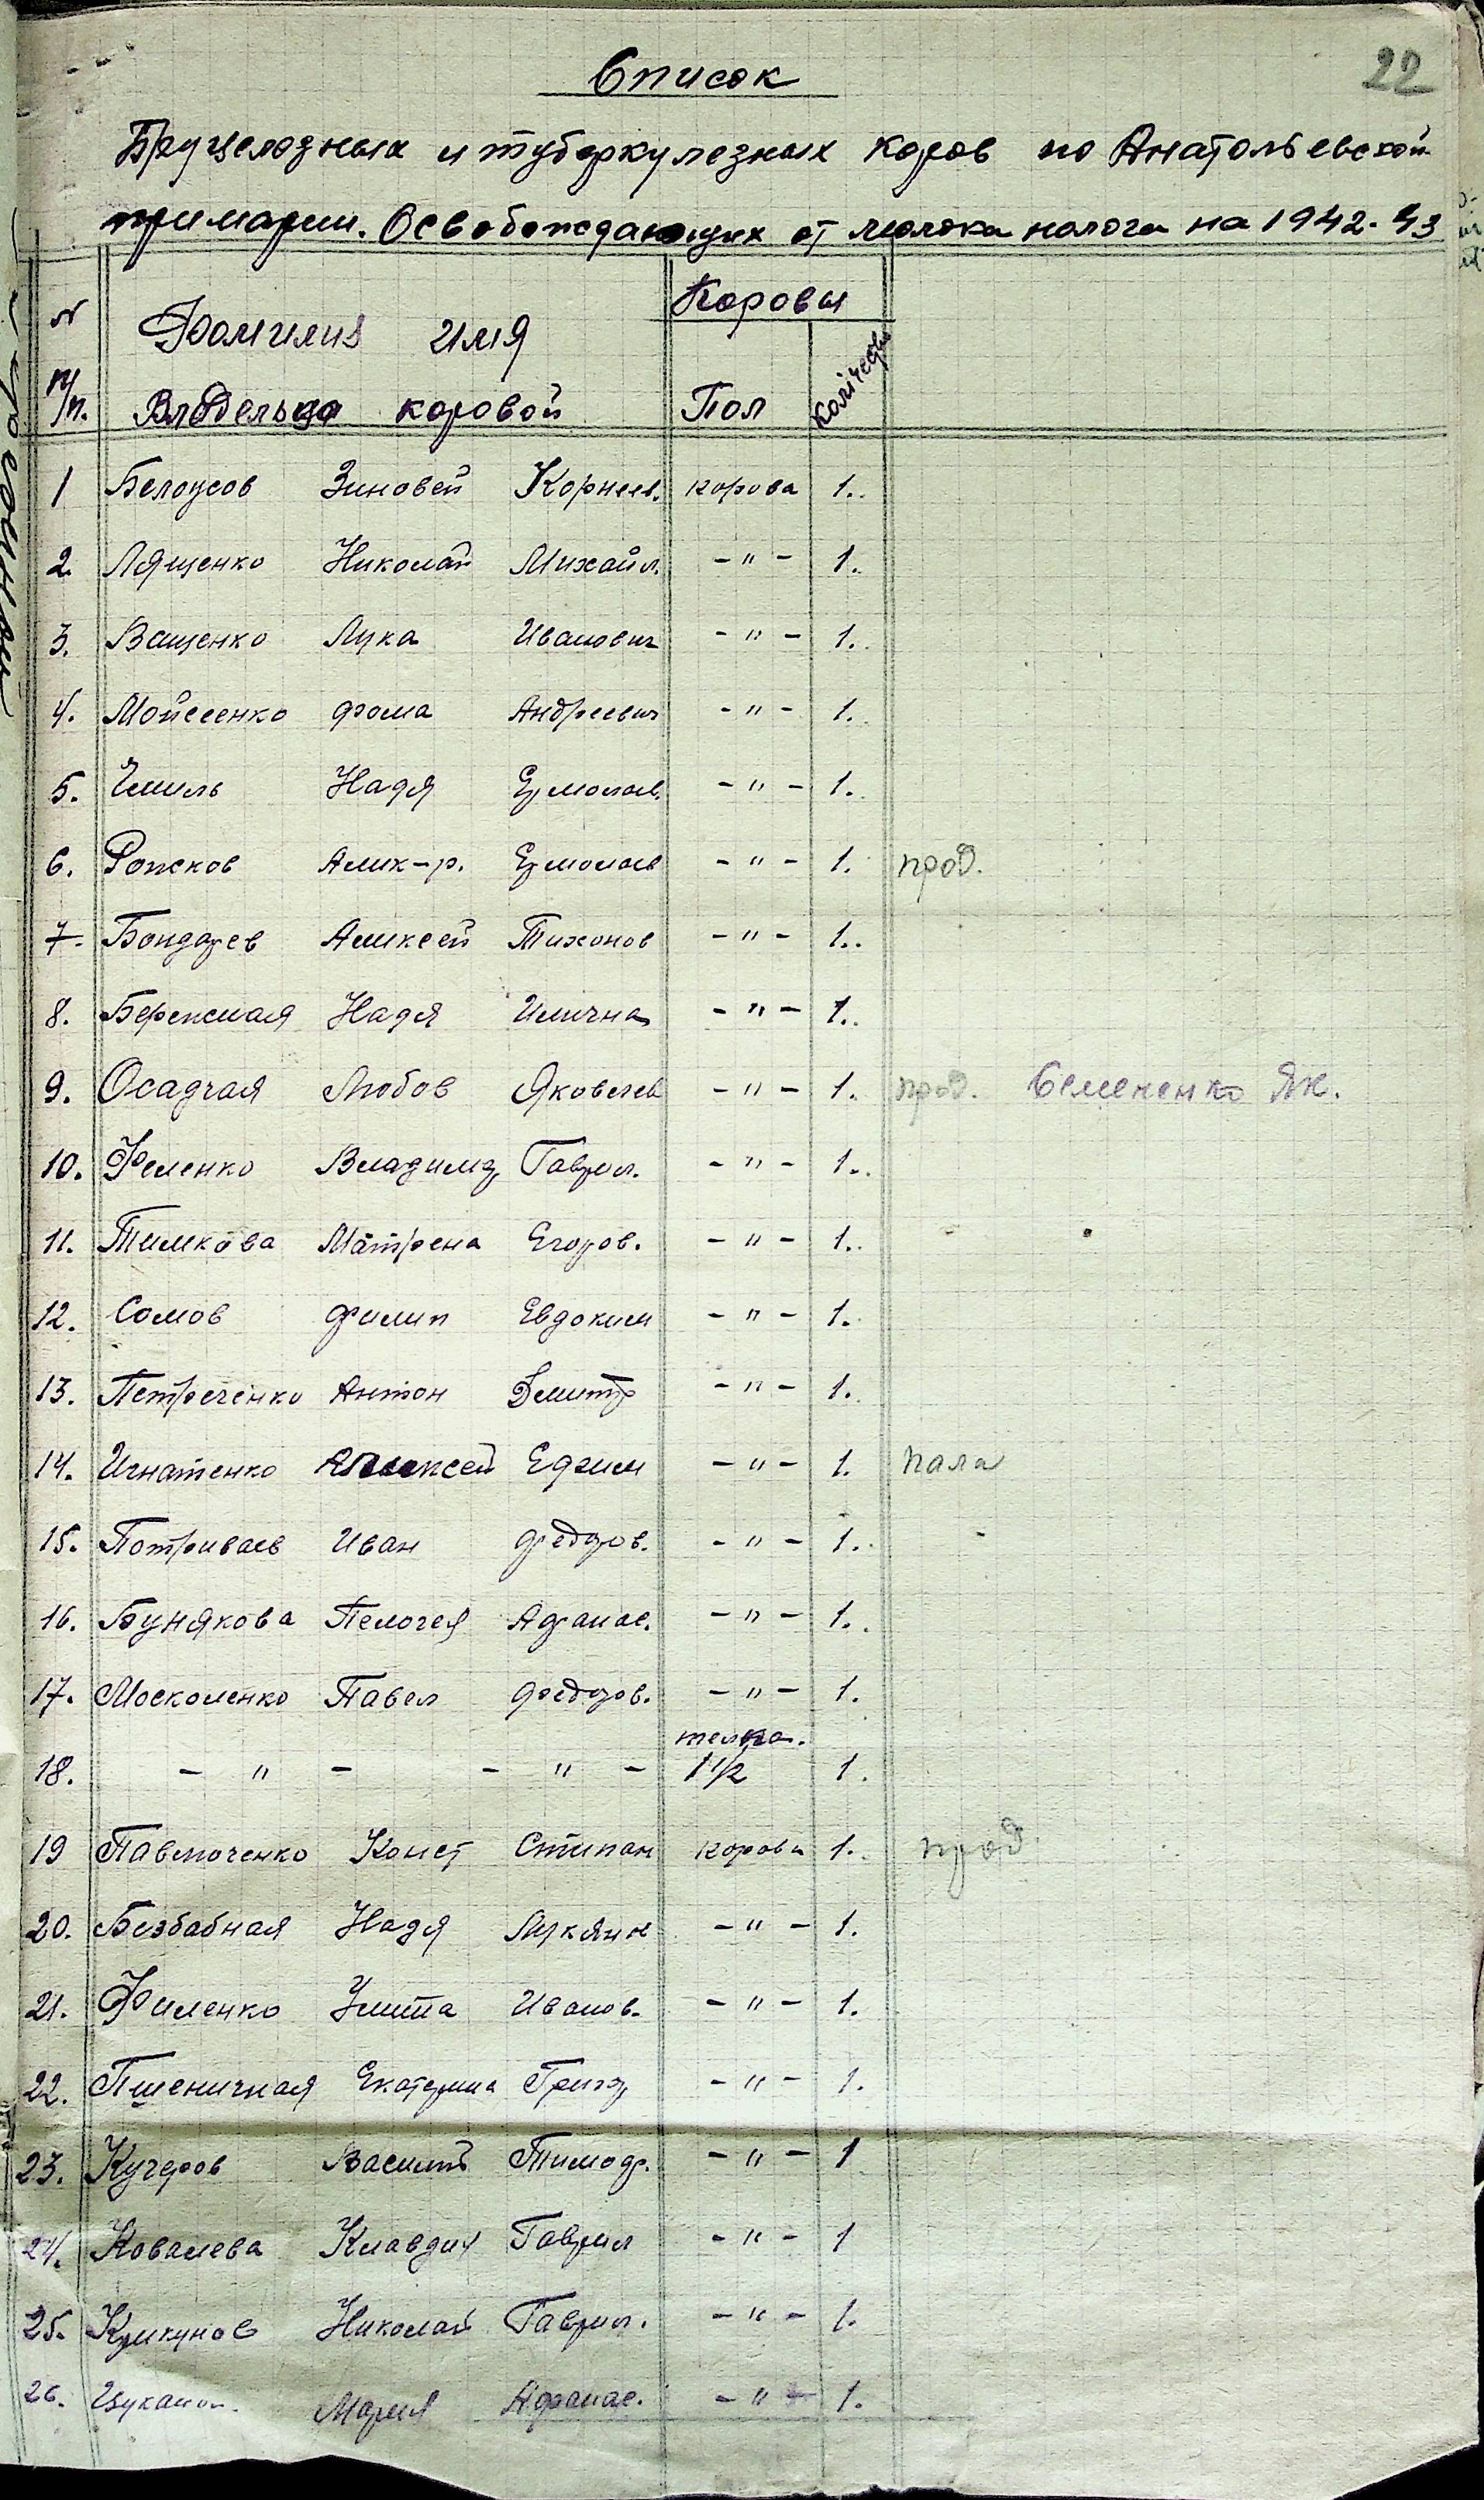 22
Список
Бруцелозных и туберкулезных коров по Анатольевской
примарии. Освобождающих от молока налога на 1942-43
N п/п. Фамилия имя Владельца коровой Коровы Пол Колічество
1 Белоусов Зиновей Корнеев. корова 1.
2. Лященко Николай Михайл. -"- 1.
3. Ващенко Лука Иванович -"- 1.
4. Мойсеенко Фома Андреевич -"- 1.
5. Чмиль Надя Ермолаев. -"- 1.
6. Рожков Алик-р. Ермолаев -"- 1. прод.
7. Бондарев Аликсей Тихонов -"- 1.
8. Бережная Надя Илична -"- 1.
9. Осадчая Любов Яковлев -"- 1. прод. Семененко Як.
10. Феленко Владимир Гаврил. -"- 1.
11. Тимкова Матрена Егоров. -"- 1.
12. Сомов Филип Евдоким -"- 1.
13. Петреченко Антон Дмитр -"- 1.
14. Игнатенко Алексей Ефим -"- 1. пала
15. Потриваев Иван Федоров. -"- 1.
16. Бунякова Пелогея Афанас. -"- 1.
17. Москоленко Павел Федоров. -"- 1.
18. -"- -"- телка. 1 1/2 1.
19 Павлюченко Конст Стипан корова 1. прод
20. Безбабная Надя Лукянн -"- 1.
21. Филенко Улита Иванов. -"- 1.
22. Пшеничная Екатерина Григор -"- 1.
23. Кучеров Василий Тимоф. -"- 1
24. Ковалева Клавдия Гаврил -"- 1
25. Крикунов Николай Гаврил. -"- 1.
26. Мария Афанас. -"- 1.